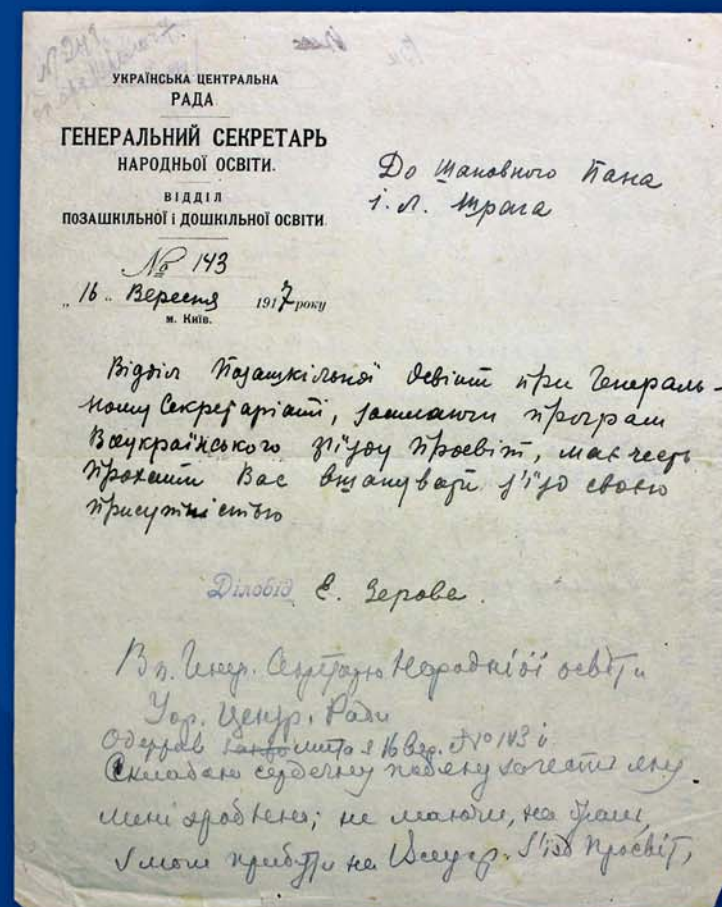 УКРАЇНСЬКА ЦЕНТРАЛЬНА
РАДА
ГЕНЕРАЛЬНИЙ СЕКРЕТАРЬ
НАРОДНЬОЇ ОСВІТИ.
ВІДДІЛ
ПОЗАШКІЛЬНОЇ і ДОШКІЛЬНОЇ ОСВІТИ
№ 143
„ 16 „ Вересня 1917 року
м. Київ.
До Шановного Пана
І. Л. Шрага
Відділ Позашкільної Освіти при Генераль-
ному Секретаріаті, засилаючи програм
Всеукраїнського з'їзду Просвіт, має честь
прохати Вас вшанувати з'їзд своєю
присутністю
Діловід Є. Зерова.
Вп. Генер. Секретарю Народньої освіти
Укр. Центр. Ради
Одержав лита з 16 вер. № 143 і
складаю сердечну подяку за честь яку
мені зроблено; не маючи, на жаль,
змоги прибути на Всеукр. з'їзд Просвіт,